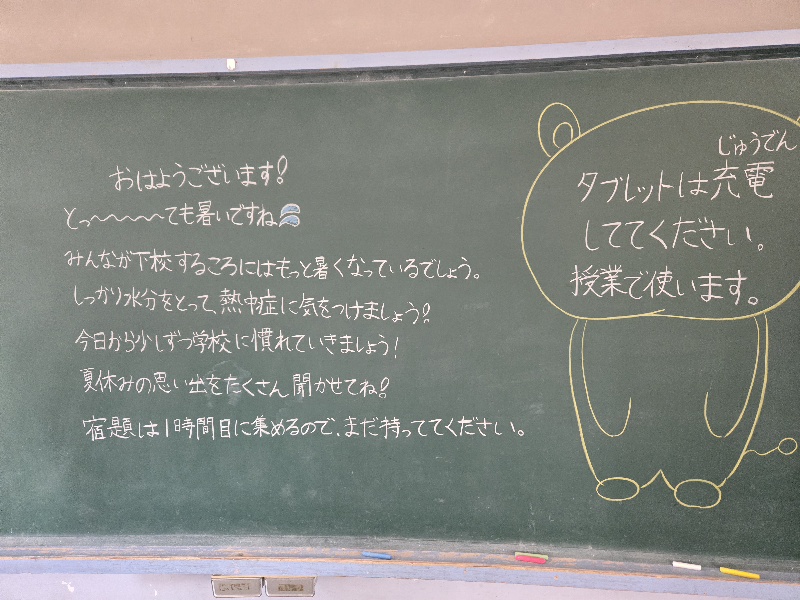 おはようございます!
とっ〜〜〜〜ても暑いですね
みんなが下校するころにはもっと暑くなっているでしょう。
しっかり水分をとって、熱中症に気をつけましょう!
今日から少しずつ学校に慣れていきましょう!
夏休みの思い出をたくさん聞かせてね!
宿題は1時間目に集めるので、まだ持っててください。
じゅうでん
タブレットは充電
しててください。
授業で使います。